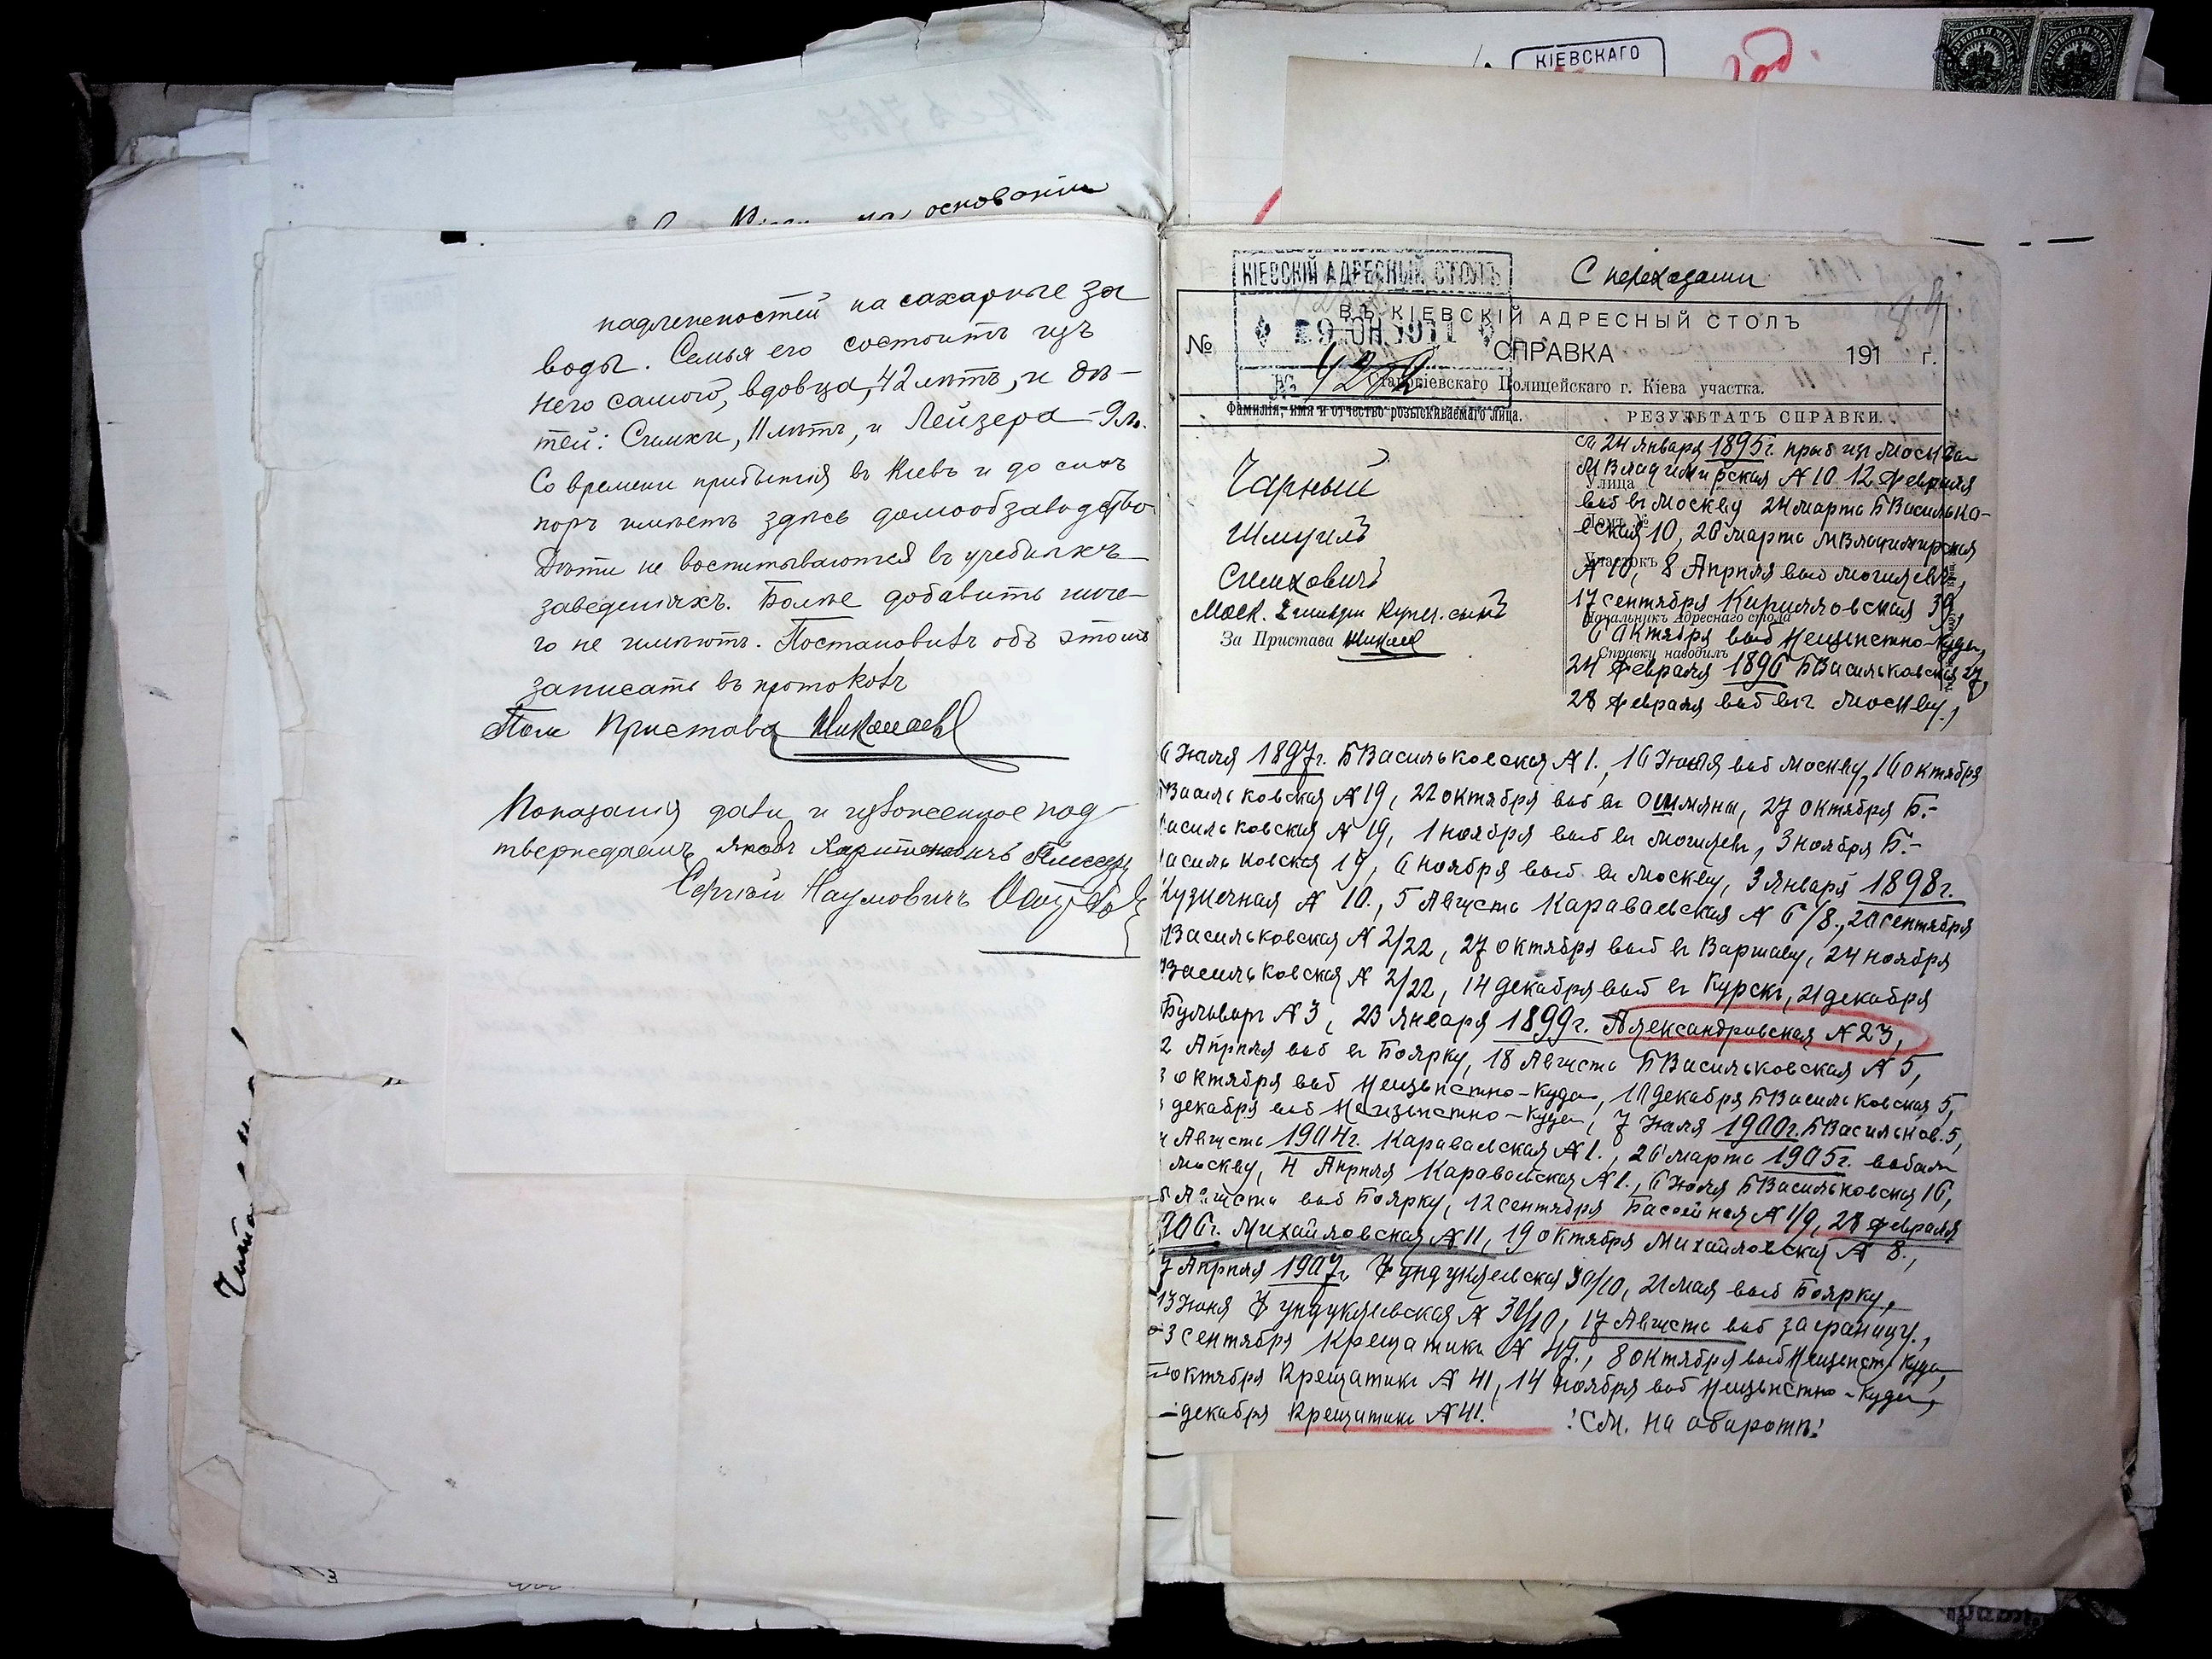 основаніи
надлежностей на сахарные за
воды. Семья его состоитъ изъ
него самого, вдовца, 42 лѣтъ, и дѣ-
тей: Симхи, 11 лѣтъ, и Лейзера - 9 л.
Со времени прибытія въ Кіевъ и до сихъ
поръ имѣетъ здѣсь домообзаводство
Дѣти не воспитываются въ учебныхъ
заведеніяхъ. Болѣе добавить ниче-
го не имѣютъ. Постановилъ объ этомъ
записать въ протоколъ
Пом Пристава Николаевъ
Показанія дали и изложенное под-
тверждаемъ Яковъ Харитоновичъ
Сергѣй Наумовичъ
КІЕВСКАГО
С переходами
КІЕВСКІЙ АДРЕСНЫЙ СТОЛЪ
ВЪ КІЕВСКІЙ АДРЕСНЫЙ СТОЛЪ
№ СПРАВКА 191 г.
Старокіевскаго Полицейскаго г. Кіева участка.
Фамилія, имя и отчество розыскиваемаго лица.
РЕЗУЛЬТАТЪ СПРАВКИ.
Чарный
Шмуиль
Симховичъ
Моск. 2 гильдіи Купеч. сынъ
За Пристава
Улица
Участокъ
Начальникъ Адреснаго стола
Справку наводилъ
съ 24 Января 1895 г. приб изъ Москвы
МВладимирская № 10 12 Февраля
выб въ Москву 24 марта БВасилько-
вская 10, 26 марта МВладимирская
№ 10, 8 Апрѣля выб Могилевъ,
17 сентября Кирилловская 39,
6 Октября выб Неизвѣстно-Куда,
24 Февраля 1896 БВасильковская 27,
28 Февраля выб въ Москву,
6 Іюля 1897 г. БВасильковская № 1., 16 Іюля выб Москву, 16 октября
Васильковская № 19, 22 октября выб въ Ошмяны, 27 октября Б.-
асильковская № 19, 1 ноября выб въ Могилевъ, 3 ноября Б.-
асильковская 19, 6 ноября выб. въ Москву, 3 Января 1898 г.
Кузнечная № 10., 5 Августа Караваевская № 6/8., 20 сентября
Васильковская № 2/22, 27 октября выб въ Варшаву, 24 ноября
Васильковская № 2/22, 14 декабря выб въ Курскъ, 21 декабря
Бульваръ № 3, 23 Января 1899 г. Александровская № 23,
2 Апрѣля выб въ Боярку, 18 Августа БВасильковская № 5,
3 октября выб Неизвѣстно-Куда, 10 декабря БВасильковская 5,
декабря выб Неизвѣстно-Куда, 7 Іюля 1900 г. БВасильков. 5,
Августа 1904 г. Караваевская № 1., 26 марта 1905 г. выбыл
Москву, 4 Апрѣля Караваевская № 1., 6 Іюля БВасильковская 16,
Августа выб Боярку, 12 сентября Бассейная № 1/9, 28 Февраля
906 г. Михайловская № 11, 19 октября Михайловская № 8.,
7 Апрѣля 1907 г. Фундуклеевская 30/10, 21 мая выб Боярку,
13 Іюня Фундуклеевская № 30/10, 17 Августа выб заграницу.,
3 сентября Крещатикъ № 47., 8 октября выб Неизвѣст. Куда,
октября Крещатикъ № 41, 14 ноября выб Неизвѣстно-Куда,
декабря Крещатикъ № 41. !См. на оборотѣ!